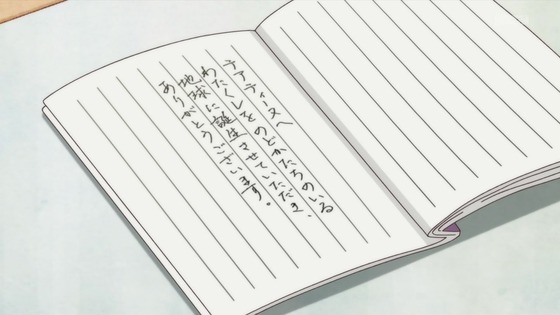 テアティーヌへ
わたくしを のどかたちのいる
地球に誕生させていただき、
ありがとうございます。